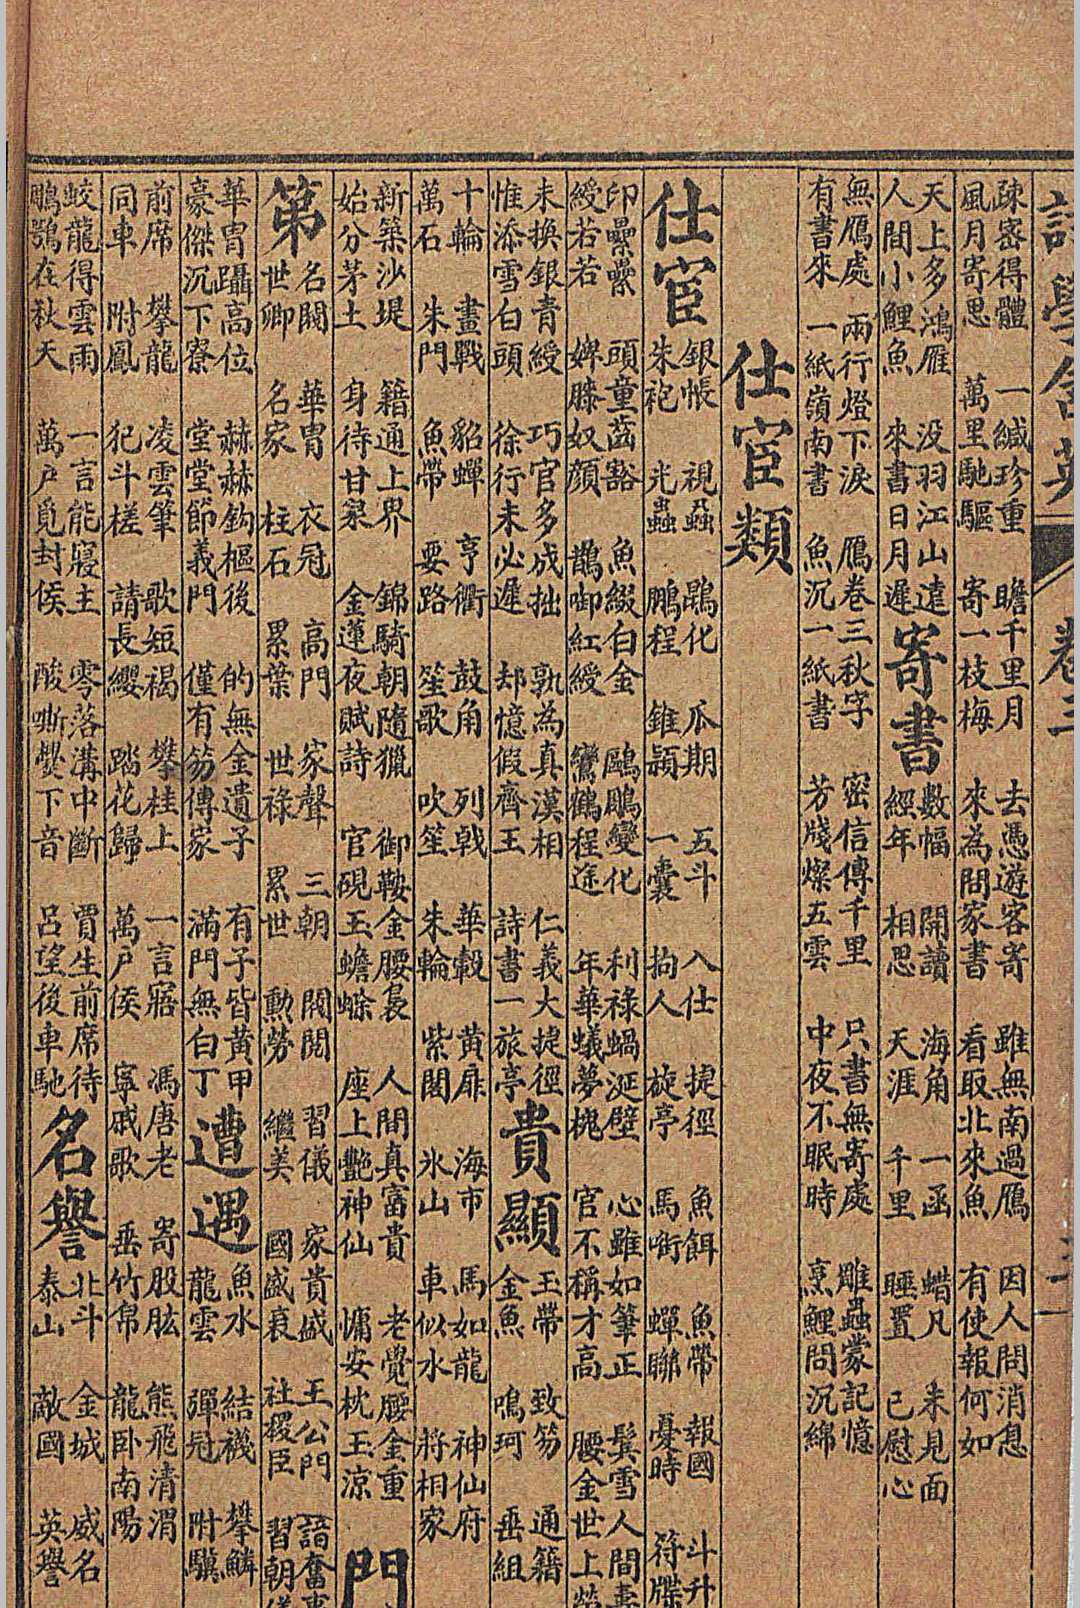 詩學含英 卷三
疎密得體 一緘珍重 瞻千里月 去憑遊客寄 雖無南過鴈 因人問消息
風月寄思 萬里馳驅 寄一枝梅 來為問家書 看取北來魚 有使報何如
天上多鴻雁 没羽江山遠
人間小鯉魚 來書日月遲
寄書
數幅 開讀 海角 一函 蜡凡 未見面
經年 相思 天涯 千里 睡置 已慰心
無鴈處 兩行燈下淚 鴈卷三秋字 密信傳千里 只書無寄處 雕蟲蒙記憶
有書來 一紙嶺南書 魚沉一紙書 芳牋燦五雲 中夜不眠時 烹鯉問沉綿
仕宦類
仕宦
銀帳 視蝨 鵾化 瓜期 五斗 入仕 捷徑 魚餌 魚帶 報國 斗升
朱袍 光蟲 鵬程 錐穎 一囊 拘人 旋亭 馬啣 蟬聯 憂時 符牒
印纍纍 頭童齒豁 魚綴白金 鷗鵰變化 利祿蝸涎壁 心雖如筆正 鬓雪人間
綬若若 婢膝奴顏 鵲啣紅綬 鸞鶴程途 年華蟻夢槐 官不稱才高 腰金世上
未換銀青綬 巧官多成拙 孰為真漢相 仁義大捷徑
惟添雪白頭 徐行未必遲 却憶假齊王 詩書一旅亭
貴顯
玉帶 致笏 通籍
金魚 鳴珂 垂組
十輪 畫戰 貂蟬 亨衢 鼓角 列戟 華轂 黄扉 海市 馬如龍 神仙府
萬石 朱門 魚帶 要路 笙歌 吹笙 朱輪 紫閣 氷山 車似水 將相家
新築沙堤 籍通上界 錦騎朝隨獵 御鞍金腰裊 人間真富貴 老覺腰金重
始分茅土 身待甘泉 金蓮夜賦詩 官硯玉蟾蜍 座上艷神仙 慵安枕玉凉
門
第
名閥 華胄 衣冠 高門 家聲 三朝 閥閱 習儀 家貴盛 王公門
世卿 名家 柱石 累葉 世祿 累世 勳勞 繼美 國盛衰 社稷臣 習朝
華胄躡高位 赫赫鈎樞後 的無金遺子 有子皆黄甲
豪傑沉下寮 堂堂節義門 僅有笏傳家 滿門無白丁
遭遇
魚水 結襪 攀鱗
龍雲 彈冠 附驥
前席 攀龍 凌雲筆 歌短褐 攀桂上 一言寤 馮唐老 寄股肱 熊飛清渭
同車 附鳳 犯斗槎 請長纓 踏花歸 萬戶侯 寧戚歌 垂竹帛 龍卧南陽
蛟龍得雲雨 一言能寤主 零落溝中斷 賈生前席待
鵰鶚在秋天 萬戶覓封侯 酸嘶爨下音 呂望後車馳
名譽
北斗 金城 威名
泰山 敵國 英譽